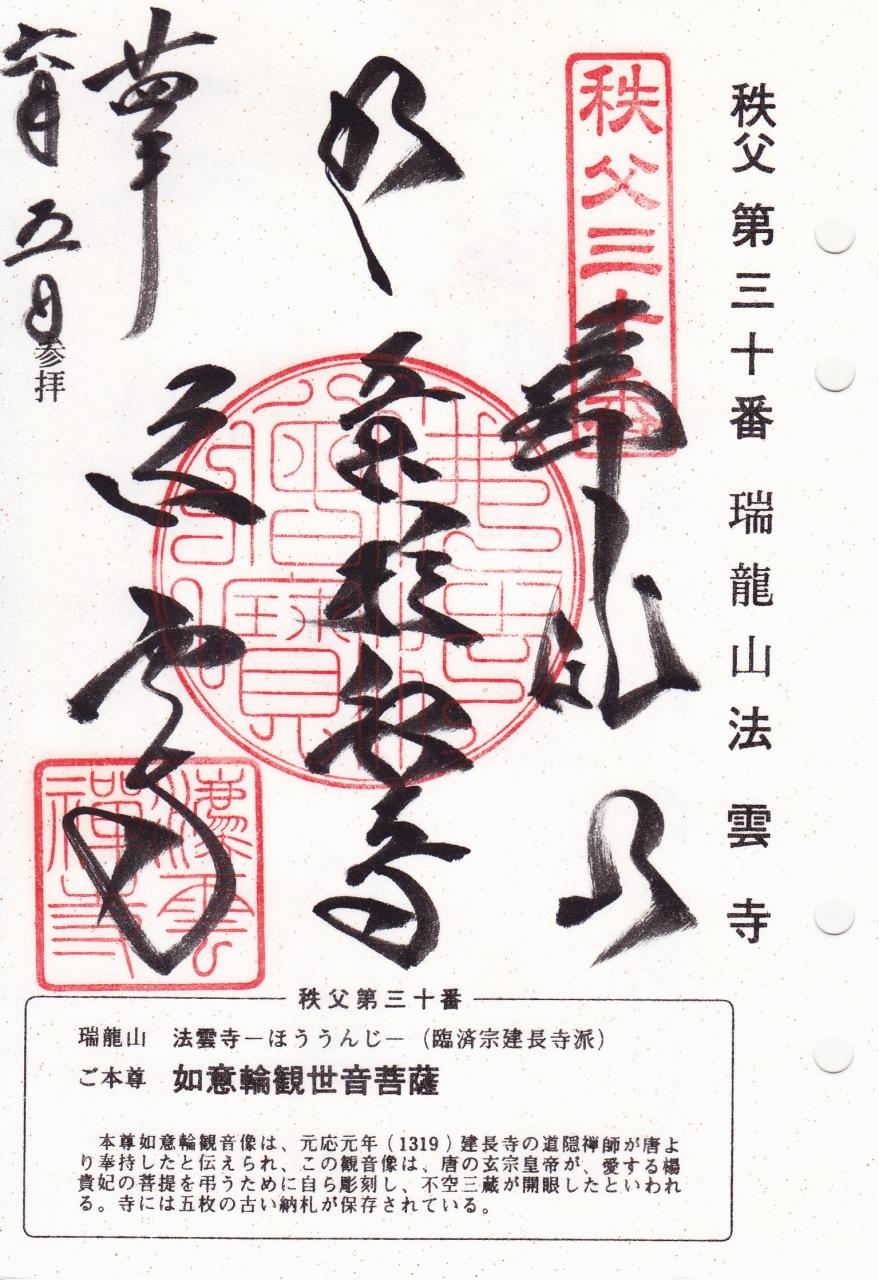 秩父第三十番 瑞龍山法雲寺
秩父三十番
奉拝
如意輪観音
法雲寺
廿四年
六月五日
参拝
法雲禅寺
秩父第三十番
瑞龍山 法雲寺−ほううんじ−(臨済宗建長寺派)
ご本尊 如意輪観世音菩薩
本尊如意輪観音像は、元応元年(1319)建長寺の道隠禅師が唐よ
り奉持したと伝えられ、この観音像は、唐の玄宗皇帝が、愛する楊
貴妃の菩提を弔うために自ら彫刻し、不空三蔵が開眼したといわれ
る。寺には五枚の古い納札が保存されている。